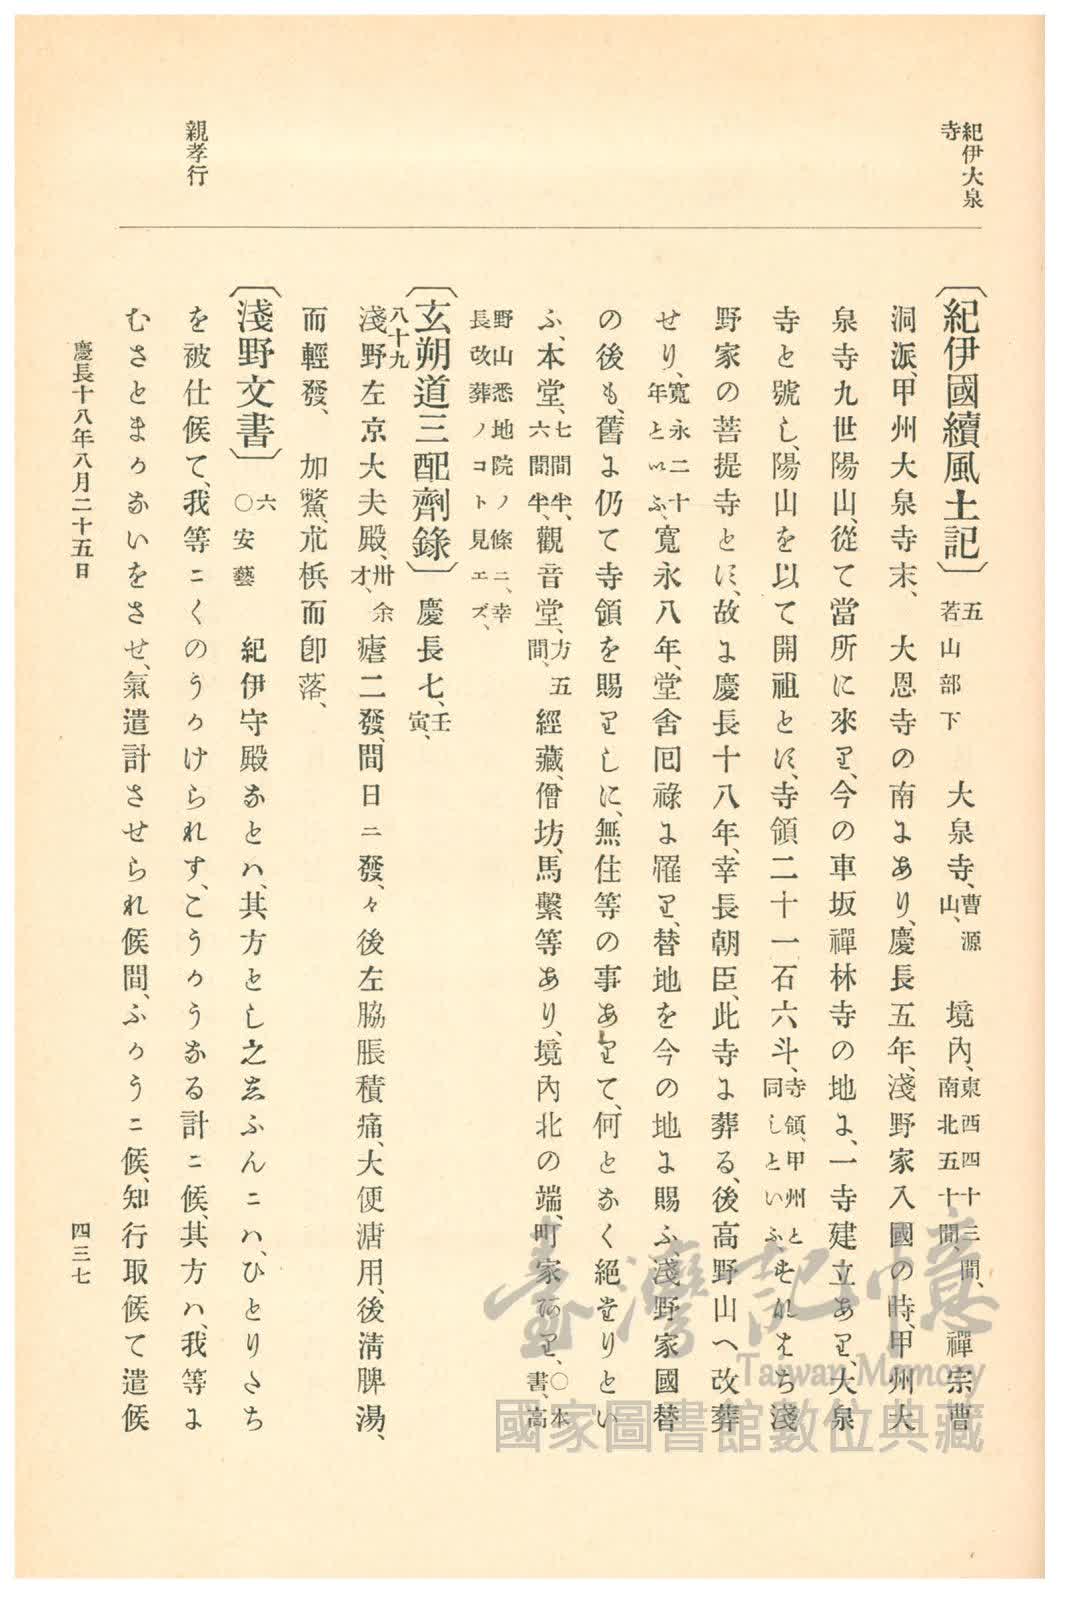 紀伊大泉
寺
親孝行
〔紀伊國續風土記〕五若山部下 大泉寺、曹源山、 境内、東西四十三間、南北五十間、禪宗曹
洞派、甲州大泉寺末、 大恩寺の南よあり、慶長五年、淺野家入國の時、甲州大
泉寺九世陽山、從て當所に來り、今の車坂禪林寺の地よ、一寺建立あり、大泉
寺と號し、陽山を以て開祖とす、寺領二十一石六斗、寺領、甲州と同しといふ、すなはち淺
野家の菩提寺とす、故よ慶長十八年、幸長朝臣、此寺よ葬る、後高野山へ改葬
せり、寛永二十年といふ、寛永八年、堂舍回祿よ罹り、替地を今の地よ賜ふ、淺野家國替
の後も、舊よ仍て寺領を賜りしに、無住等の事ありて、何となく絶たりとい
ふ、本堂、七間半、六間半、觀音堂、方五間、 經藏、僧坊、馬繫等あり、境内北の端、町家なり、○本書、高
野山悉地院ノ條ニ、幸長改葬ノコト見エズ、
〔玄朔道三配劑錄〕慶長七、壬寅、
八十九
淺野左京大夫殿、卅余才、 瘧二發、間日ニ發、々後左脇脹積痛、大便溏用、後淸脾湯、
而輕發、 加鱉、朮梹而卽落、
〔淺野文書〕六○安藝 紀伊守殿なとハ、其方とし之ゑふんニハ、ひとりさち
を被仕候て、我等ニくのうかけられす、こうかうなる計ニ候、其方ハ、我等よ
むさとまかないをさせ、氣遣計させられ候間、ふかうニ候、知行取候て遣候
慶長十八年八月二十五日
四三七
臺灣記憶
Taiwan Memory
國家圖書館數位典藏